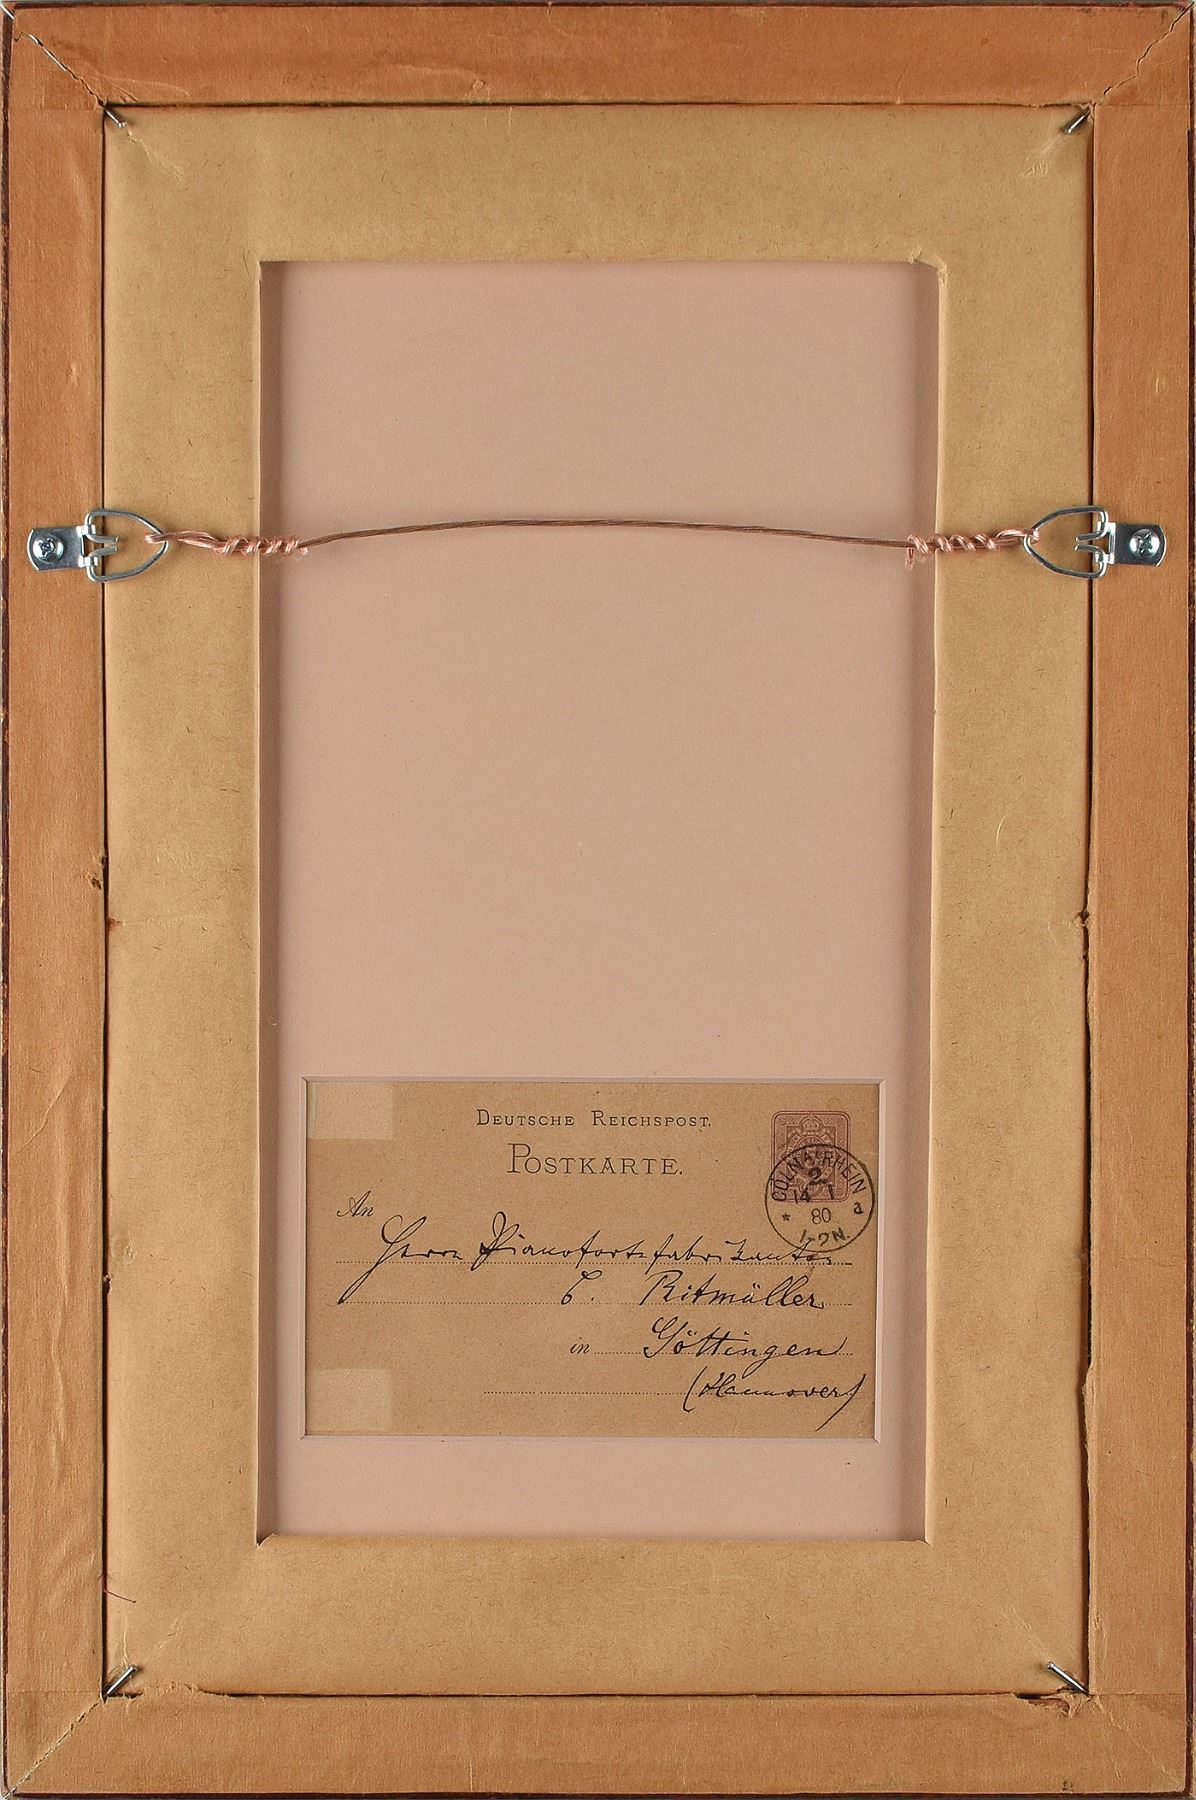 DEUTSCHE REICHSPOST.
POSTKARTE.
CÖLN A/RHEIN
2
14 1
80
1-2N.
* a
An
Herrn Pianofortefabrikanten
C. Ritmüller
in Göttingen
(Hannover)